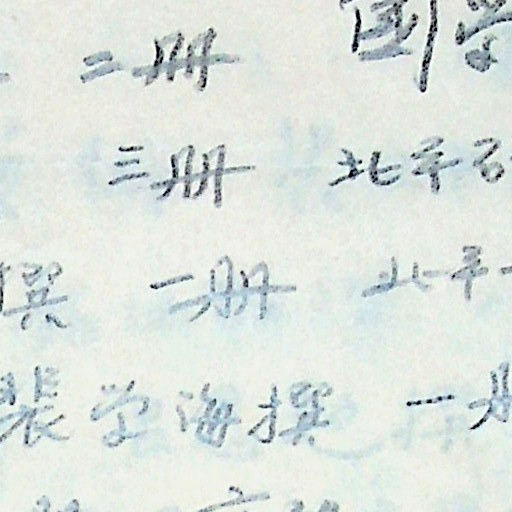 二册 国学
三册 北平
撰 一册 北平
裴学海撰 一册